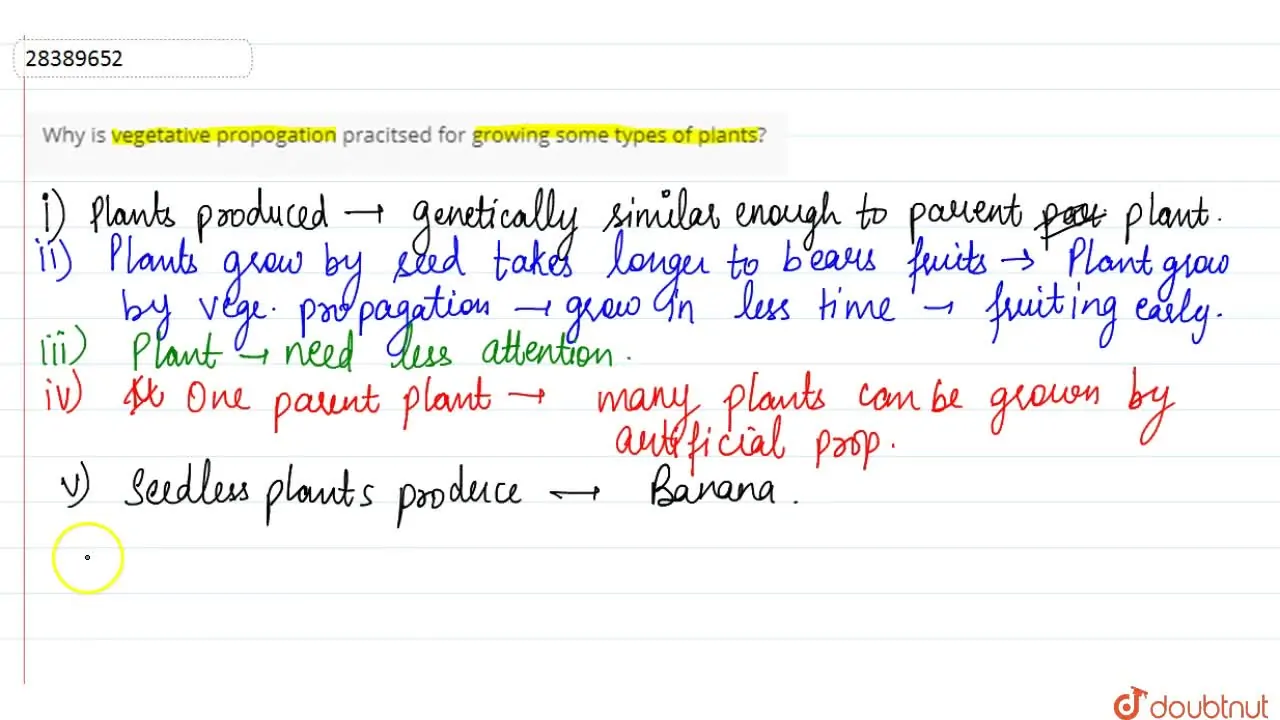 28389652
Why is vegetative propogation pracitsed for growing some types of plants?
i) Plants produced → genetically similar enough to parent plant.
ii) Plants grow by seed takes longer to bears fruits → Plant grow
by vege. propagation → grow in less time → fruiting early.
iii) Plant → need less attention.
iv) One parent plant → many plants can be grown by
artificial prop.
v) Seedless plants produce → Banana.
doubtnut